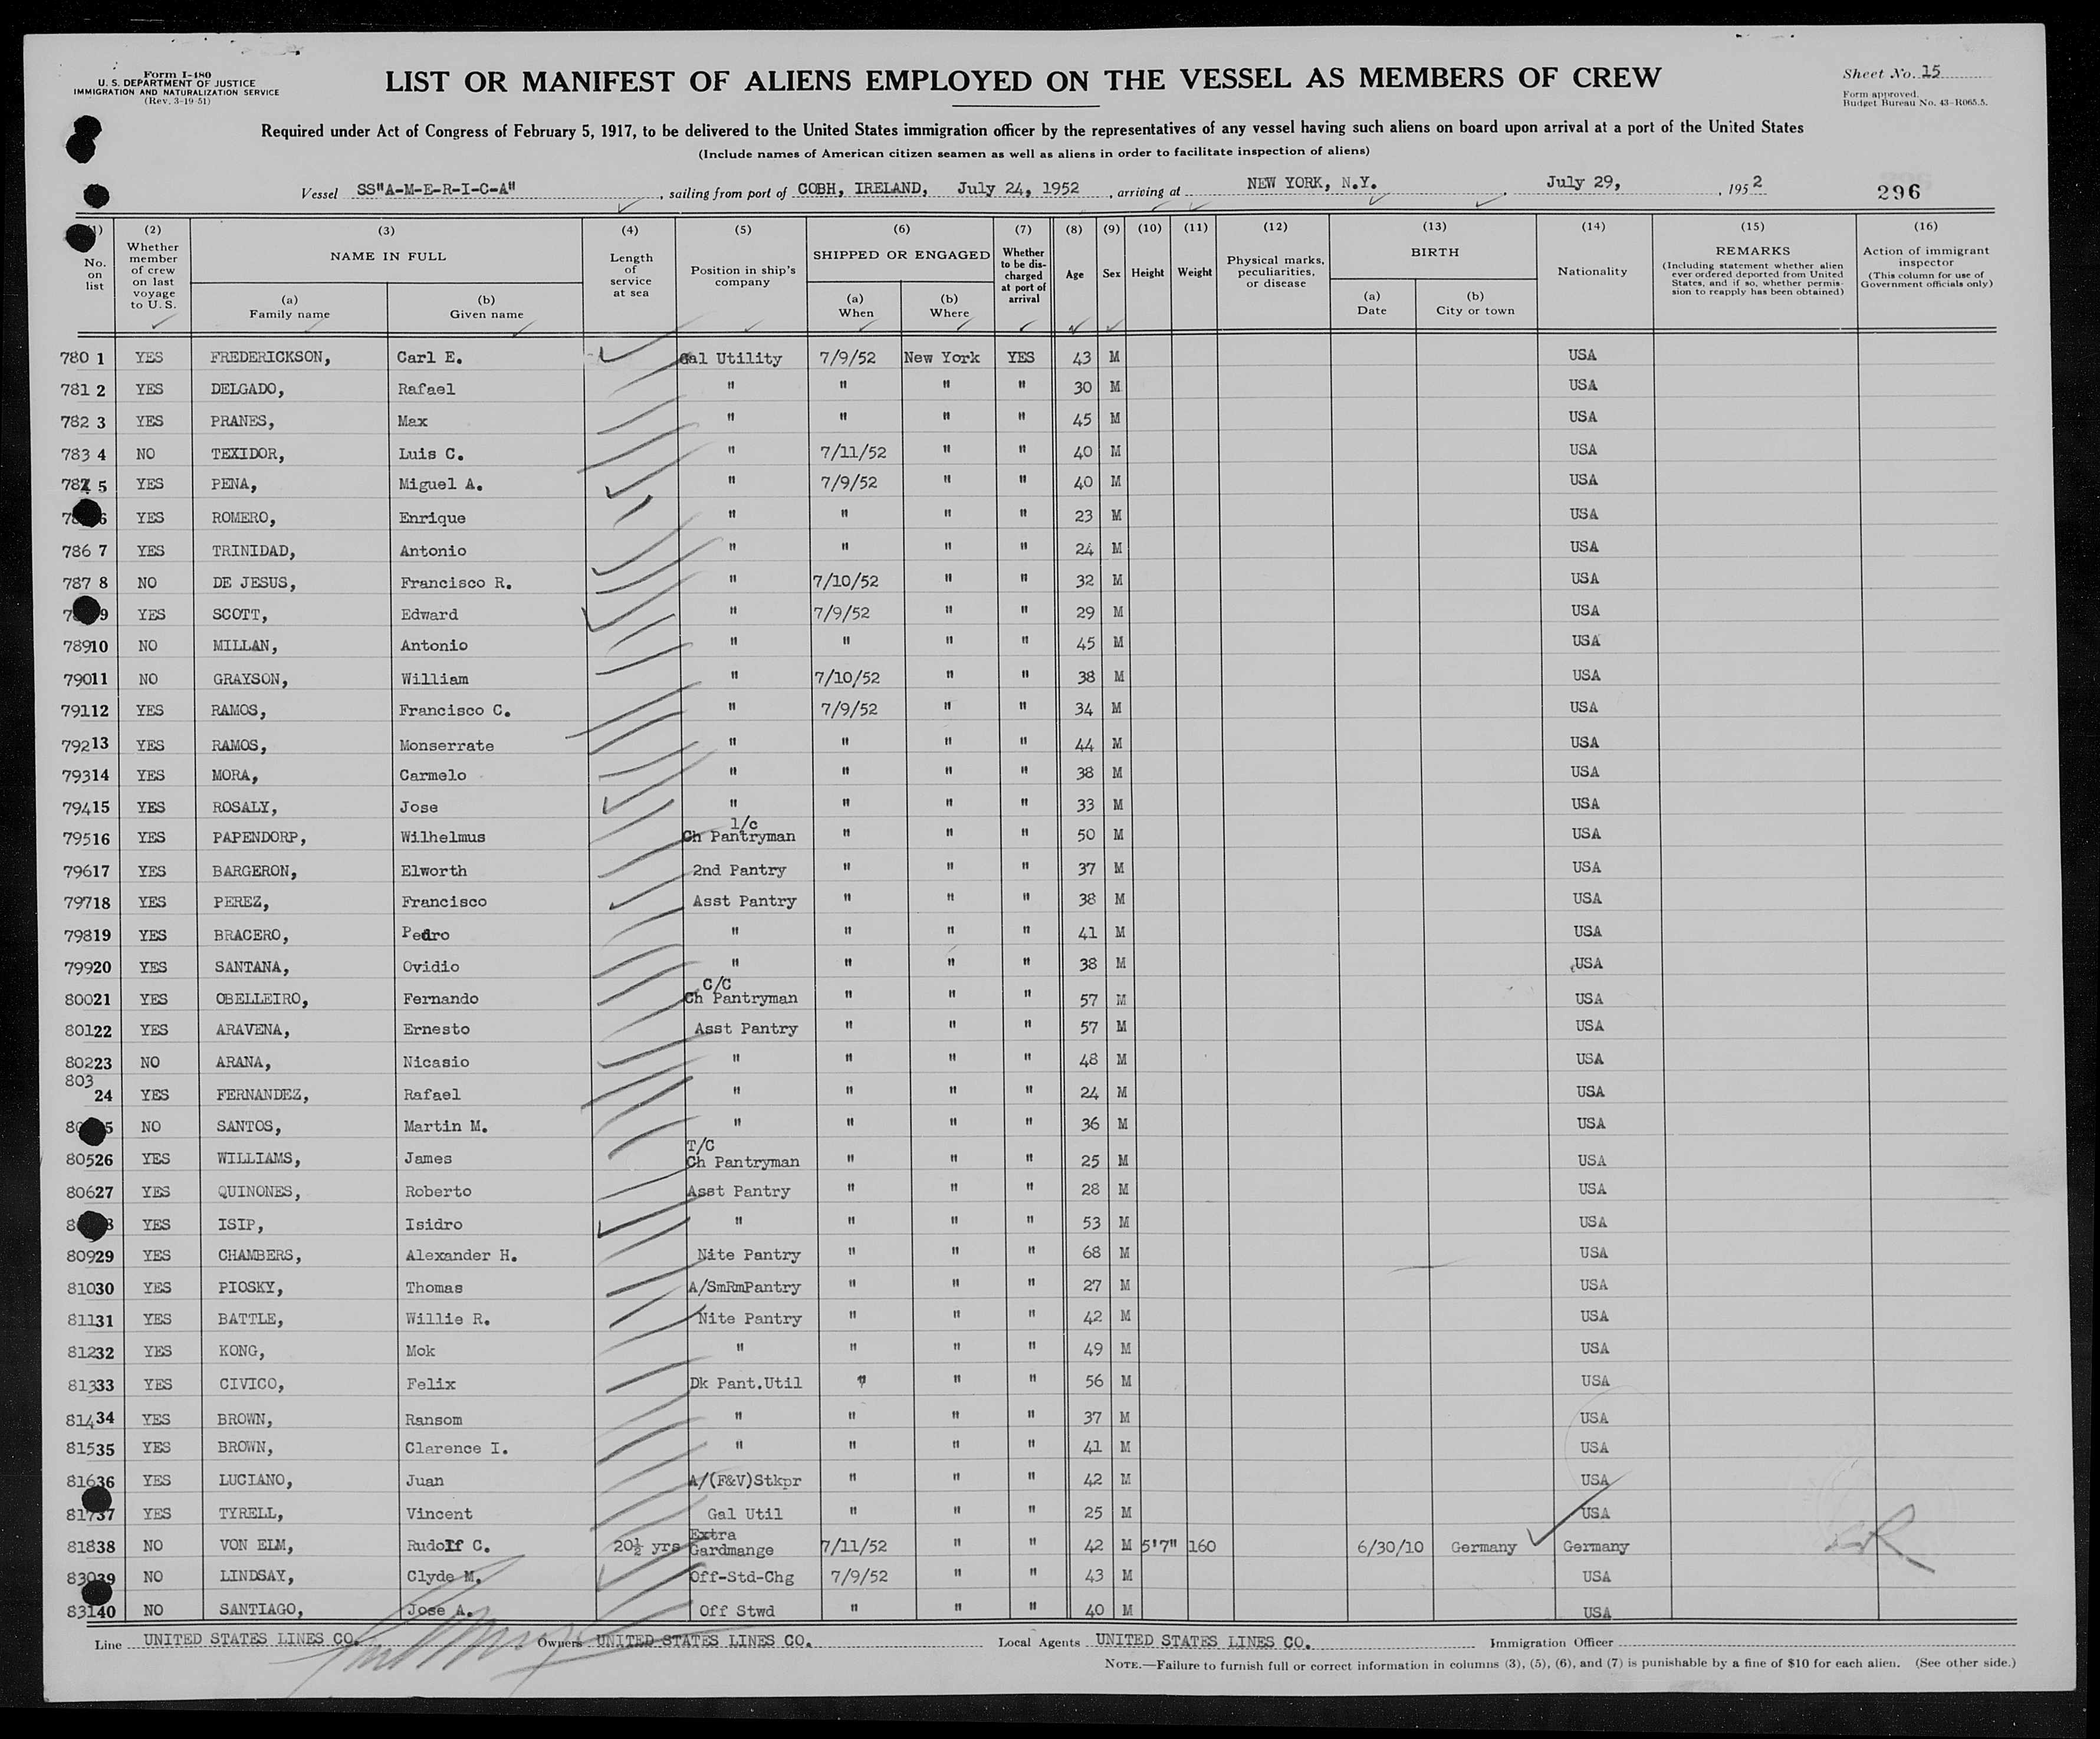 Form I-480
U. S. DEPARTMENT OF JUSTICE
IMMIGRATION AND NATURALIZATION SERVICE
(Rev. 3-19-51)
LIST OR MANIFEST OF ALIENS EMPLOYED ON THE VESSEL AS MEMBERS OF CREW
Sheet No. 15
Form approved.
Budget Bureau No. 43-R065.5.
Required under Act of Congress of February 5, 1917, to be delivered to the United States immigration officer by the representatives of any vessel having such aliens on board upon arrival at a port of the United States
(Include names of American citizen seamen as well as aliens in order to facilitate inspection of aliens)
Vessel SS"A-M-E-R-I-C-A", sailing from port of COBH, IRELAND, July 24, 1952, arriving at NEW YORK, N.Y., July 29, 1952
296
(1) No. on list
(2) Whether member of crew on last voyage to U.S.
(3) NAME IN FULL (a) Family name (b) Given name
(4) Length of service at sea
(5) Position in ship's company
(6) SHIPPED OR ENGAGED (a) When (b) Where
(7) Whether to be discharged at port of arrival
(8) Age
(9) Sex
(10) Height
(11) Weight
(12) Physical marks, peculiarities, or disease
(13) BIRTH (a) Date (b) City or town
(14) Nationality
(15) REMARKS (Including statement whether alien ever ordered deported from United States, and if so, whether permission to reapply has been obtained)
(16) Action of immigrant inspector (This column for use of Government officials only)
780 1 YES FREDERICKSON, Carl E. Gal Utility 7/9/52 New York YES 43 M USA
781 2 YES DELGADO, Rafael " " " " 30 M USA
782 3 YES PRANES, Max " " " " 45 M USA
783 4 NO TEXIDOR, Luis C. " 7/11/52 " " 40 M USA
784 5 YES PENA, Miguel A. " 7/9/52 " " 40 M USA
6 YES ROMERO, Enrique " " " " 23 M USA
786 7 YES TRINIDAD, Antonio " " " " 24 M USA
787 8 NO DE JESUS, Francisco R. " 7/10/52 " " 32 M USA
9 YES SCOTT, Edward " 7/9/52 " " 29 M USA
789 10 NO MILLAN, Antonio " " " " 45 M USA
790 11 NO GRAYSON, William " 7/10/52 " " 38 M USA
791 12 YES RAMOS, Francisco C. " 7/9/52 " " 34 M USA
792 13 YES RAMOS, Monserrate " " " " 44 M USA
793 14 YES MORA, Carmelo " " " " 38 M USA
794 15 YES ROSALY, Jose " " " " 33 M USA
795 16 YES PAPENDORP, Wilhelmus 1/c Ch Pantryman " " " 50 M USA
796 17 YES BARGERON, Elworth 2nd Pantry " " " 37 M USA
797 18 YES PEREZ, Francisco Asst Pantry " " " 38 M USA
798 19 YES BRACERO, Pedro " " " " 41 M USA
799 20 YES SANTANA, Ovidio " " " " 38 M USA
800 21 YES OBELLEIRO, Fernando C/C Ch Pantryman " " " 57 M USA
801 22 YES ARAVENA, Ernesto Asst Pantry " " " 57 M USA
802 23 NO ARANA, Nicasio " " " " 48 M USA
803 24 YES FERNANDEZ, Rafael " " " " 24 M USA
5 NO SANTOS, Martin M. " " " " 36 M USA
805 26 YES WILLIAMS, James T/C Ch Pantryman " " " 25 M USA
806 27 YES QUINONES, Roberto Asst Pantry " " " 28 M USA
8 YES ISIP, Isidro " " " " 53 M USA
809 29 YES CHAMBERS, Alexander H. Nite Pantry " " " 68 M USA
810 30 YES PIOSKY, Thomas A/SmRmPantry " " " 27 M USA
811 31 YES BATTLE, Willie R. Nite Pantry " " " 42 M USA
812 32 YES KONG, Mok " " " " 49 M USA
813 33 YES CIVICO, Felix Dk Pant.Util " " " 56 M USA
814 34 YES BROWN, Ransom " " " " 37 M USA
815 35 YES BROWN, Clarence I. " " " " 41 M USA
816 36 YES LUCIANO, Juan A/(F&V)Stkpr " " " 42 M USA
817 37 YES TYRELL, Vincent Gal Util " " " 25 M USA
818 38 NO VON ELM, Rudolf C. 20½ yrs Extra Gardmange 7/11/52 " " 42 M 5'7" 160 6/30/10 Germany Germany
830 39 NO LINDSAY, Clyde M. Off-Std-Chg 7/9/52 " " 43 M USA
831 40 NO SANTIAGO, Jose A. Off Stwd " " " 40 M USA
Line UNITED STATES LINES CO. Owners UNITED STATES LINES CO. Local Agents UNITED STATES LINES CO. Immigration Officer
NOTE.—Failure to furnish full or correct information in columns (3), (5), (6), and (7) is punishable by a fine of $10 for each alien. (See other side.)